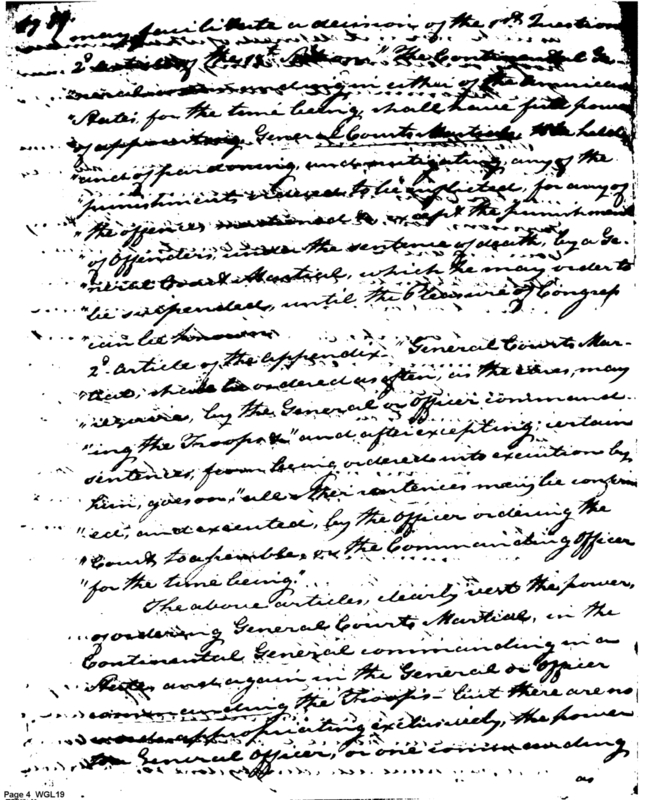 1789. may facilitate a decision of the 1st Question
2d article of the 18th Section. "The Continental Ge-
"neral commanding in either of the American
"States, for the time being, shall have full power
"of appointing General Courts Martial, to be held,
"and of pardoning, and mitigating, any of the
"punishments ordered to be inflicted, for any of
"the offences mentioned & except the punishment
"of Offenders, under the sentence of death, by a Ge-
"neral Court Martial, which he may order to
"be suspended, until the Pleasure of Congress
"can be known
2d article of the appendix "General Courts Mar-
"tial, shall be ordered as often, as the cases, may
"require, by the General or Officer command-
"ing the Troops &" and after excepting, certain
sentences, from being, ordered into execution by
him, goes on, "all other sentences may be confirm
"ed, and executed, by the officer ordering the
"Court to assemble, or the Commanding Officer
"for the time being."
The above articles, clearly vest the power,
of ordering General Courts Martial, in the
Continental General commanding in a
State, and again in the General or Officer
commanding the Troops - but there are no
words appropriating exclusively, the power
the General Officer, or one commanding
as
Page 4 WGL19